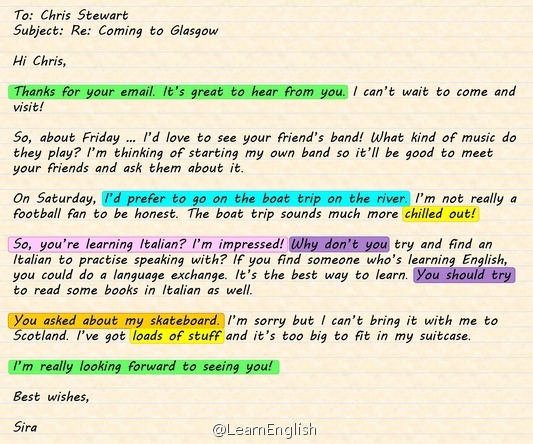 To: Chris Stewart
Subject: Re: Coming to Glasgow
Hi Chris,
Thanks for your email. It's great to hear from you. I can't wait to come and
visit!
So, about Friday ... I'd love to see your friend's band! What kind of music do
they play? I'm thinking of starting my own band so it'll be good to meet
your friends and ask them about it.
On Saturday, I'd prefer to go on the boat trip on the river. I'm not really a
football fan to be honest. The boat trip sounds much more chilled out!
So, you're learning Italian? I'm impressed! Why don't you try and find an
Italian to practise speaking with? If you find someone who's learning English,
you could do a language exchange. It's the best way to learn. You should try
to read some books in Italian as well.
You asked about my skateboard. I'm sorry but I can't bring it with me to
Scotland. I've got loads of stuff and it's too big to fit in my suitcase.
I'm really looking forward to seeing you!
Best wishes,
Sira
@LearnEnglish